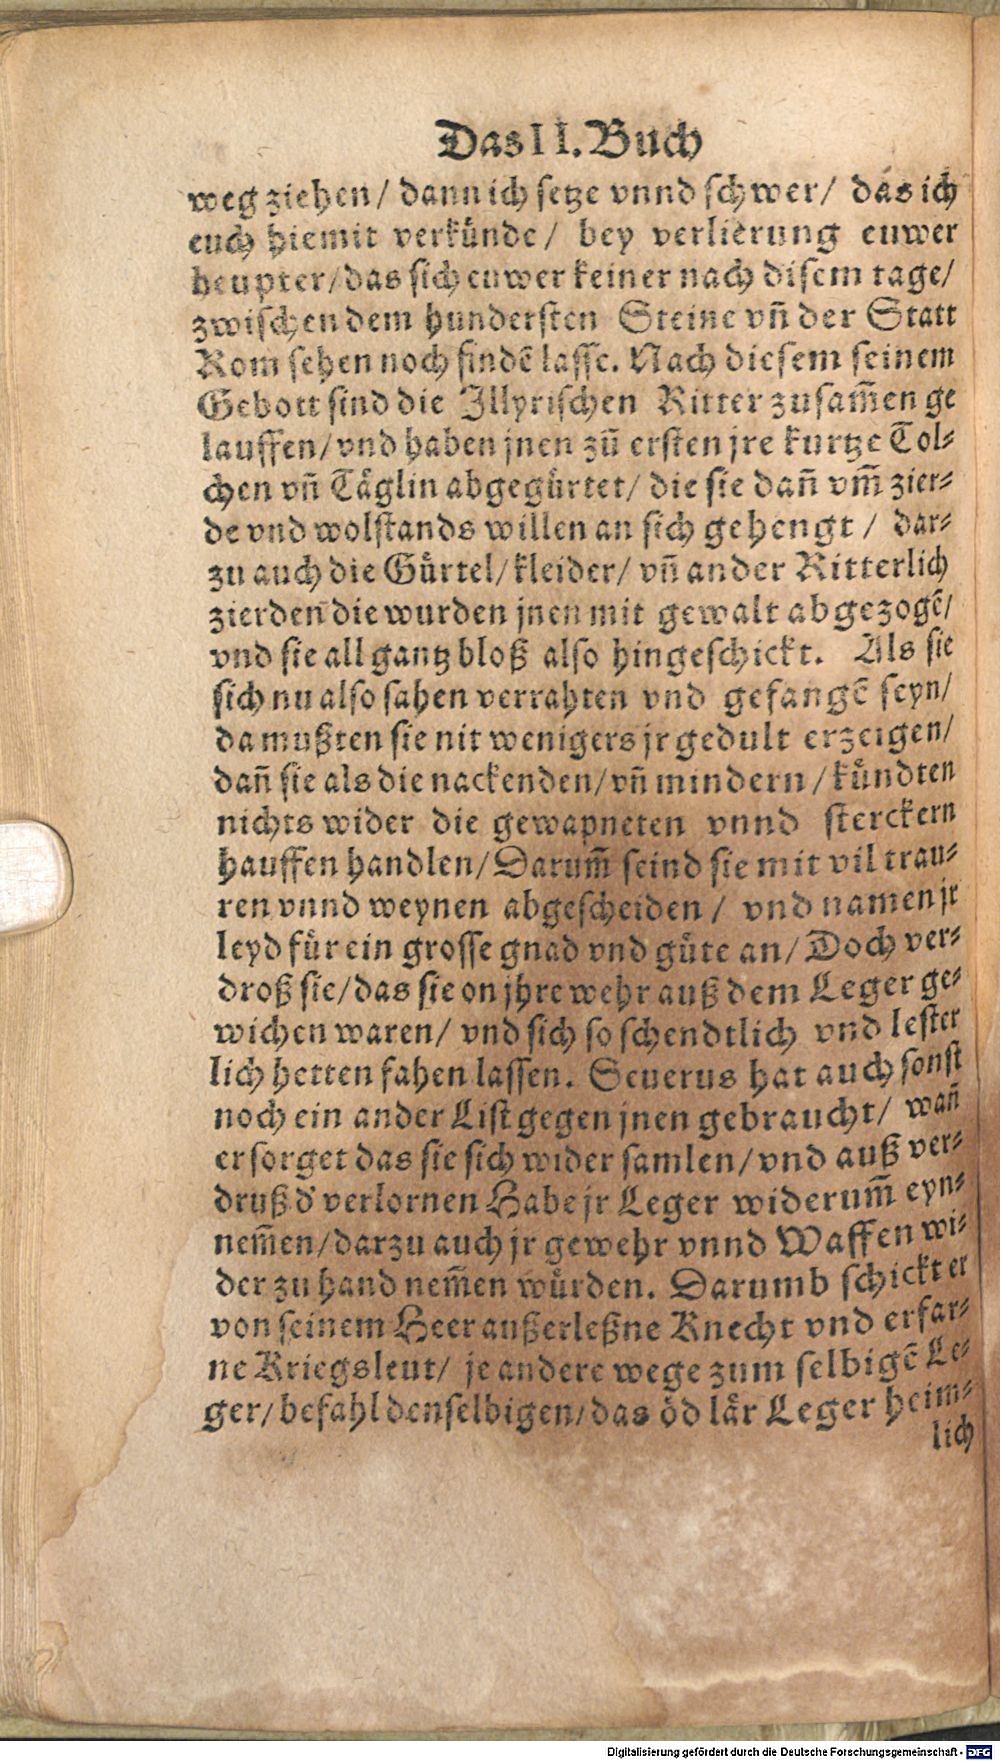 Das II. Buch
weg ziehen/ dann ich setze vnnd schwer/ das ich
euch hiemit verkünde/ bey verlierung euwer
heupter/das sich euwer keiner nach disem tage/
zwischen dem hundersten Steine vñ der Statt
Rom sehen noch findẽ lasse. Nach diesem seinem
Gebott sind die Illyrischen Ritter zusam̃en ge
lauffen/vnd haben jnen zũ ersten jre kurtze Tol⸗
chen vñ Täglin abgegürtet/ die sie dañ vm̃ zier⸗
de vnd wolstands willen an sich gehengt / dar⸗
zu auch die Gürtel/kleider/ vñ ander Ritterlich
zierden die wurden jnen mit gewalt abgezogẽ/
vnd sie all gantz bloß also hingeschickt. Als sie
sich nu also sahen verrahten vnd gefangẽ seyn/
da mußten sie nit wenigers jr gedult erzeigen/
dañ sie als die nackenden/vñ mindern /kündten
nichts wider die gewapneten vnnd sterckern
hauffen handlen/Darum̃ seind sie mit vil trau⸗
ren vnnd weynen abgescheiden / vnd namen jr
leyd für ein grosse gnad vnd güte an/ Doch ver⸗
droß sie/das sie on jhre wehr auß dem Leger ge⸗
wichen waren/ vnd sich so schendtlich vnd lester
lich hetten fahen lassen. Seuerus hat auch sonst
noch ein ander List gegen jnen gebraucht/ wañ
er sorget das sie sich wider samlen/vnd auß ver⸗
druß d' verlornen Habe jr Leger widerum̃ eyn⸗
nem̃en/darzu auch jr gewehr vnnd Waffen wi⸗
der zu hand nem̃en würden. Darumb schickt er
von seinem Heer außerleßne Knecht vnd erfar⸗
ne Kriegsleut/ je andere wege zum selbigẽ Le⸗
ger/befahl denselbigen/das öd lär Leger heim⸗
lich
Digitalisierung gefördert durch die Deutsche Forschungsgemeinschaft - DFG